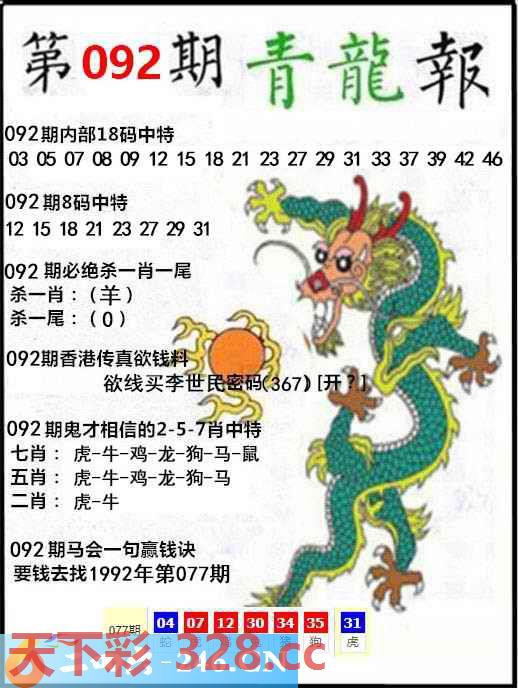 第092期青龍報
092期内部18码中特
03 05 07 08 09 12 15 18 21 23 27 29 31 33 37 39 42 46
092期8码中特
12 15 18 21 23 27 29 31
092期必绝杀一肖一尾
杀一肖：(羊)
杀一尾：(0)
092期香港传真欲钱料
欲线买李世民密码(367)[开?]
092期鬼才相信的2-5-7肖中特
七肖：虎-牛-鸡-龙-狗-马-鼠
五肖：虎-牛-鸡-龙-狗-马
二肖：虎-牛
092期马会一句赢钱诀
要钱去找1992年第077期
077期 04 07 12 30 34 35 31
蛇 猪 狗 虎
天下彩-328.cc